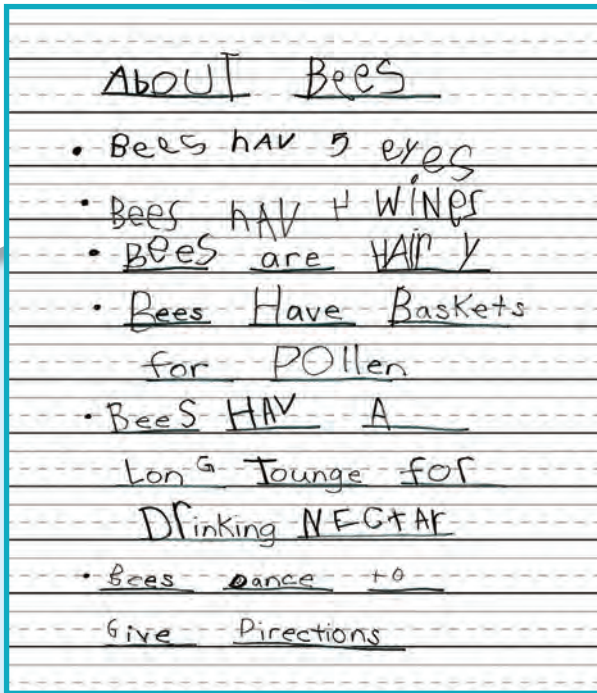 AboUT BeeS
• Bees hAV 5 eyes
• Bees hAV 4 WiNes
• BeeS are HAiry
• Bees Have Baskets
for POllen
• BeeS HAV A
LonG Tounge for
Drinking NECtAr
• Bees Dance to
Give Directions